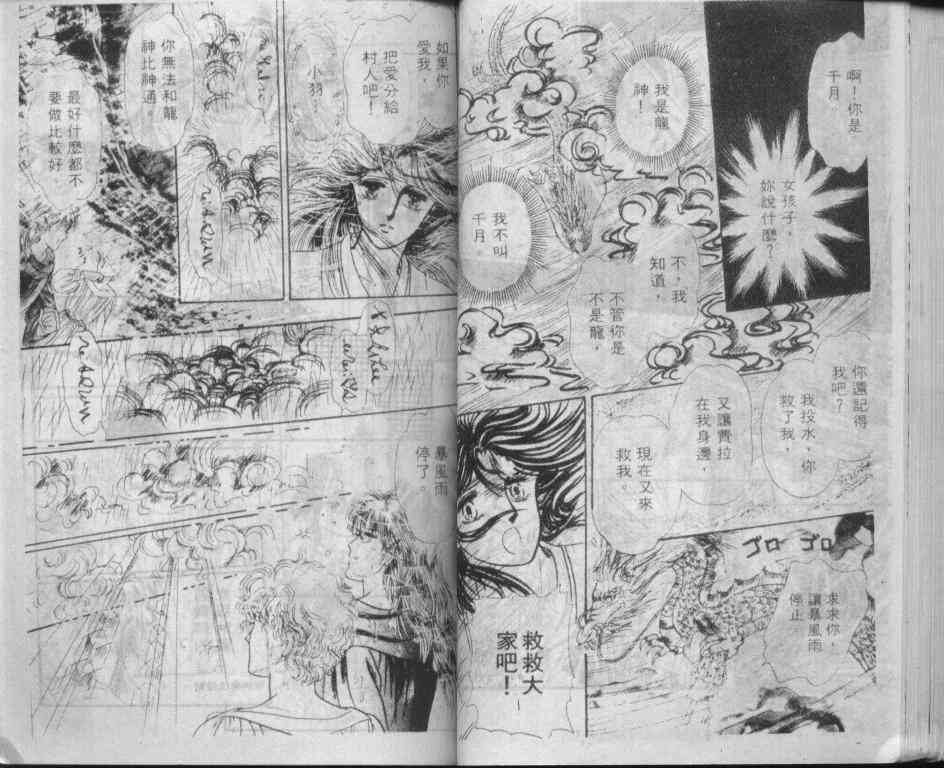 啊！你是
千月。
女孩子，
妳說什麼？
我是龍
神！
我不叫
千月。
不，我
知道，
不管你是
不是龍，
你還記得
我吧？
我投水，你
救了我，
又讓費拉
在我身邊，
現在又來
救我。
ゴロ ゴロ
求求你，
讓暴風雨
停止。
救救大
家吧！
如果你
愛我，
把愛分給
村人吧！
小羽
你無法和龍
神比神通。
最好什麼都不
要做比較好
暴風雨
停了。